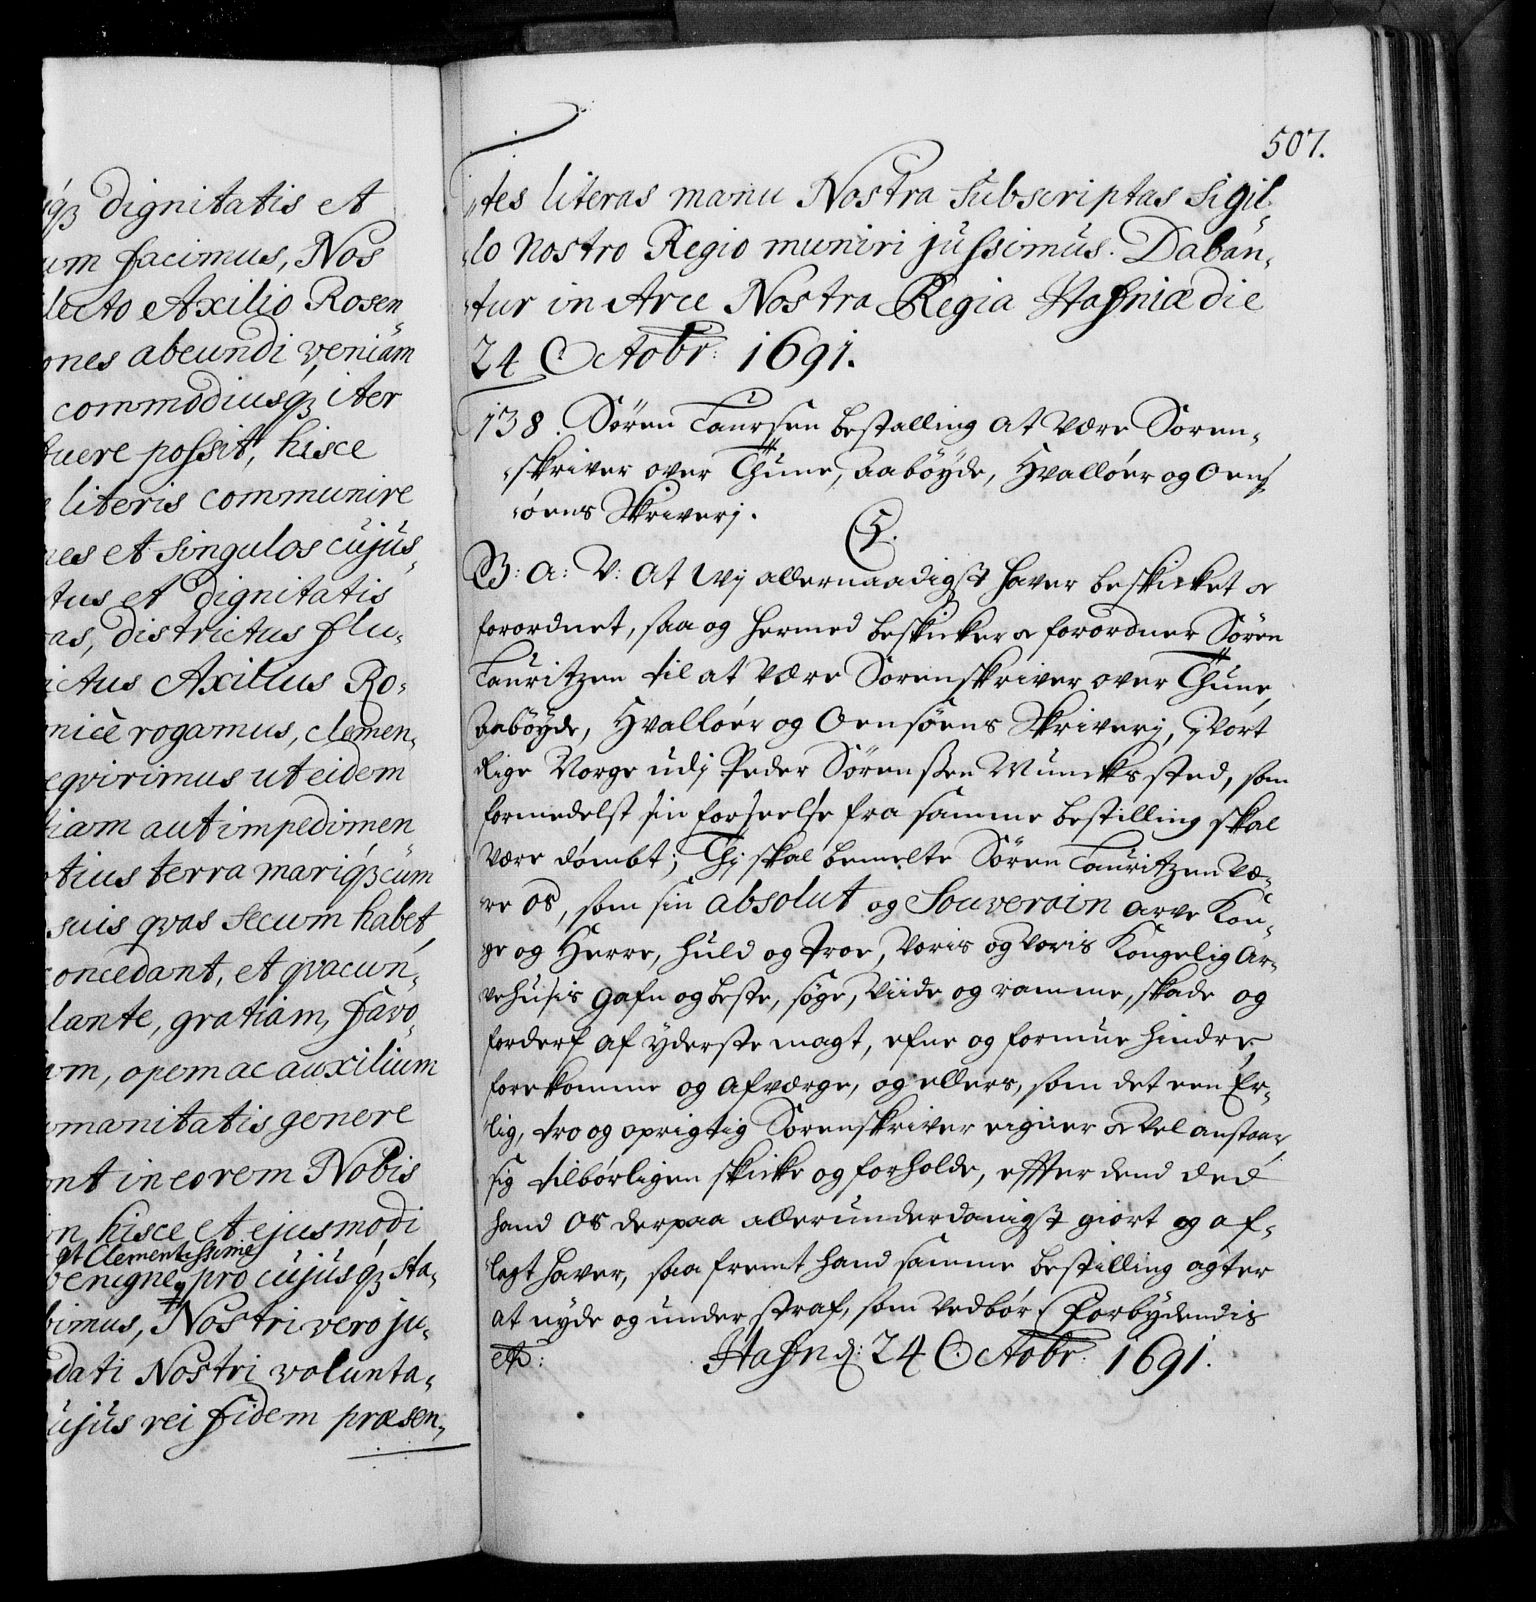 qȝ dignitatis et
um facimus, Nos
lecto Axilio Rosen
ones abeundi veniam
commodiusqȝ iter
tuere possit, hisce
literis communire
nes et singulos cujus-
tus et dignitatis
as, districtus flu-
ictus Axilius Ro-
nice rogamus, clemen-
eqvirimus ut eidem
iam aut impedimen
tius terra mariqȝ cum
suis qvas secum habet,
concedant, et qvacun-
lante, gratiam, favo-
um, opem ac auxilium
manitatis genere
nt in eo rem Nobis
n hisce et ejusmodi
at Clementissime
benigne, pro cujusqȝ sta-
bimus, Nostri vero ju-
dati Nostri volunta-
ujus rei fidem præsen-
507.
tes literas manu Nostra subscriptas Sigil-
lo Nostro Regio muniri jussimus. Daban-
tur in Arce Nostra Regia Hafniæ die
24 Octobr: 1691.
138. Sören Laursen bestalling at være Soren-
skriver over Thune, Aaböyde, Hvallöer og Oens-
öens Skriverj.
C 5.
G: A: V: At Wj allernaadigst hafver beskicket oc
forordnet, saa og hermed beskicker oc forordner Sören
Lauritzen til at være Sorenskriver over Thune,
Aaböyde, Hvallöer og Oensöens Skriverj, i Vort
Rige Norge udj Peder Sörenßen Muncks sted, som
formedelst sin forseelse fra samme bestilling skal
være dömbt; Thj skal bemelte Sören Lauritzen væ-
re os, som sin absolut og Souverain arve Kon-
ge og Herre, huld og troe, voris og voris Kongelig Ar-
vehusis gafn og beste, söge, viide og ramme, skade og
forderf af yderste magt, efne og formue hindre
forekomme og afværge, og ellers, som det een Er-
lig, tro og oprigtig Sorenskriver eigner oc vel anstaar,
sig tilbörligen skicke og forholde, effter dend Eed
hand os derpaa allerunderdanigst giort og af-
lagt hafver, saa fremt hand samme bestilling agter
at nyde og under straf, som vedbör. Forbydendis
etc: Hafn d: 24 Octobr: 1691.